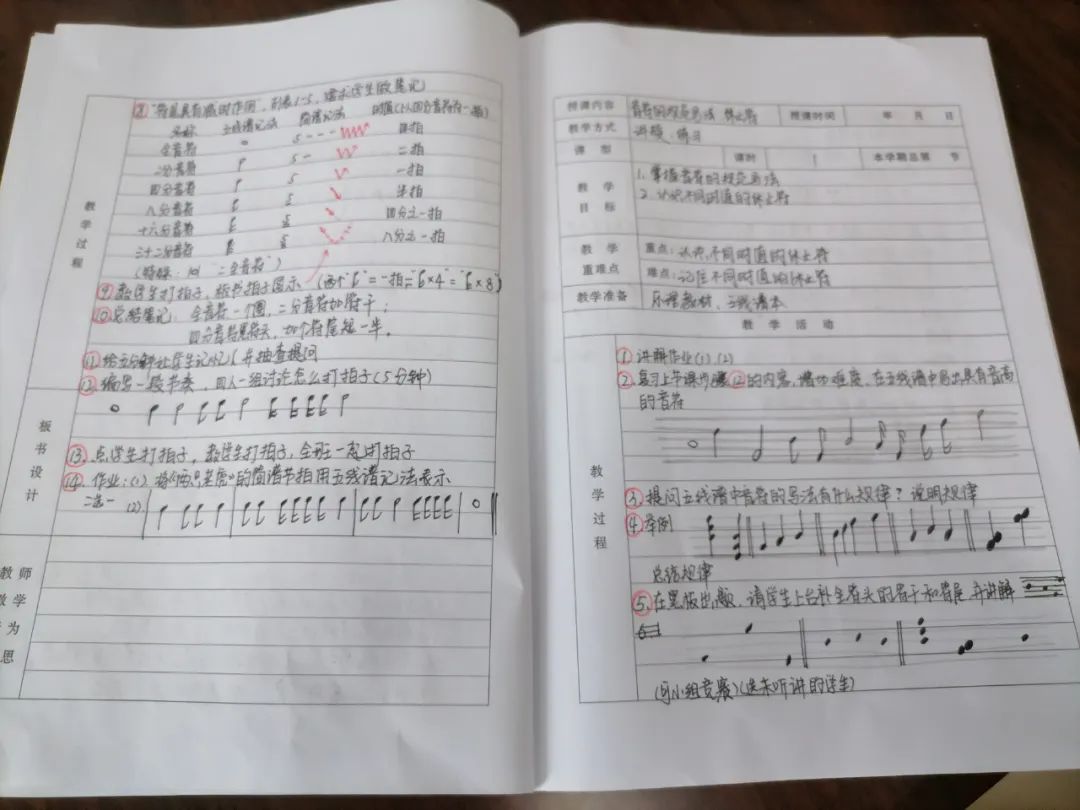 教学过程
名称 五线谱记法 简谱记法 时值(以四分音符为一拍)
全音符 5 - - - 四拍
二分音符 5 - 二拍
四分音符 5 一拍
八分音符 5 半拍
十六分音符 5 四分之一拍
三十二分音符 5 八分之一拍
⑨教学生打拍子,板书拍子图示
⑩总结笔记:全音符一个圈,二分音符加符干;
四分音符黑符头,加个符尾短一半。
⑪给五分钟让学生记忆(并抽查提问
⑫编写一段节奏,四人一组讨论怎么打拍子(5分钟)
板书设计
⑬点学生打拍子,教学生打拍子,全班一起打拍子
⑭作业:(1)将《两只老虎》的简谱节拍用五线谱记法表示
二选一 (2)
教师
教学
行为
思
授课内容 音符的规范写法 休止符 授课时间 年 月 日
教学方式 讲授、练习
课型 课时 1 本学期总第 节
教学目标 1. 掌握音符的规范写法
2. 认识不同时值的休止符
教学重难点 重点:认识不同时值的休止符
难点:记住不同时值的休止符
教学准备 乐理教材、五线谱本
教学活动
教学过程
①讲解作业(1)(2)
②复习上午课步骤⑫的内容,增加难度,在五线谱中写出具有音高
的音符
③提问五线谱中音符的写法有什么规律?说明规律
④举例
总结规律
⑤在黑板出题,请学生上台补全音头的符干和符尾,并讲解
(可小组竞赛)(选未听讲的学生)